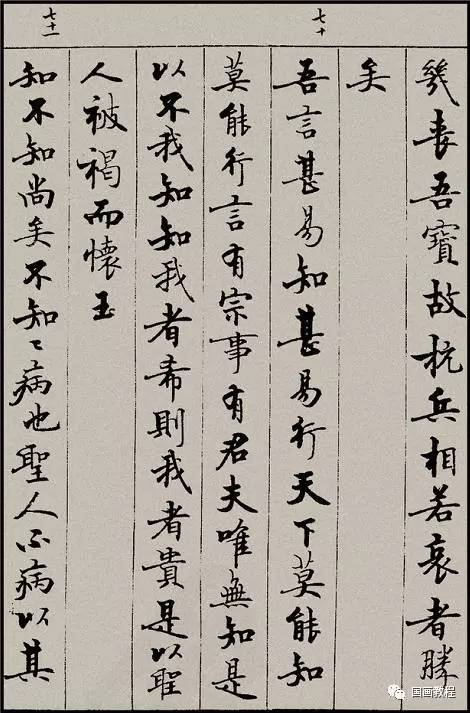 幾喪吾寶故抗兵相若哀者勝
矣
七十
吾言甚易知甚易行天下莫能知
莫能行言有宗事有君夫唯無知是
以不我知知我者希則我者貴是以聖
人被褐而懷玉
七十一
知不知尚矣不知〻病也聖人不病以其
国画教程